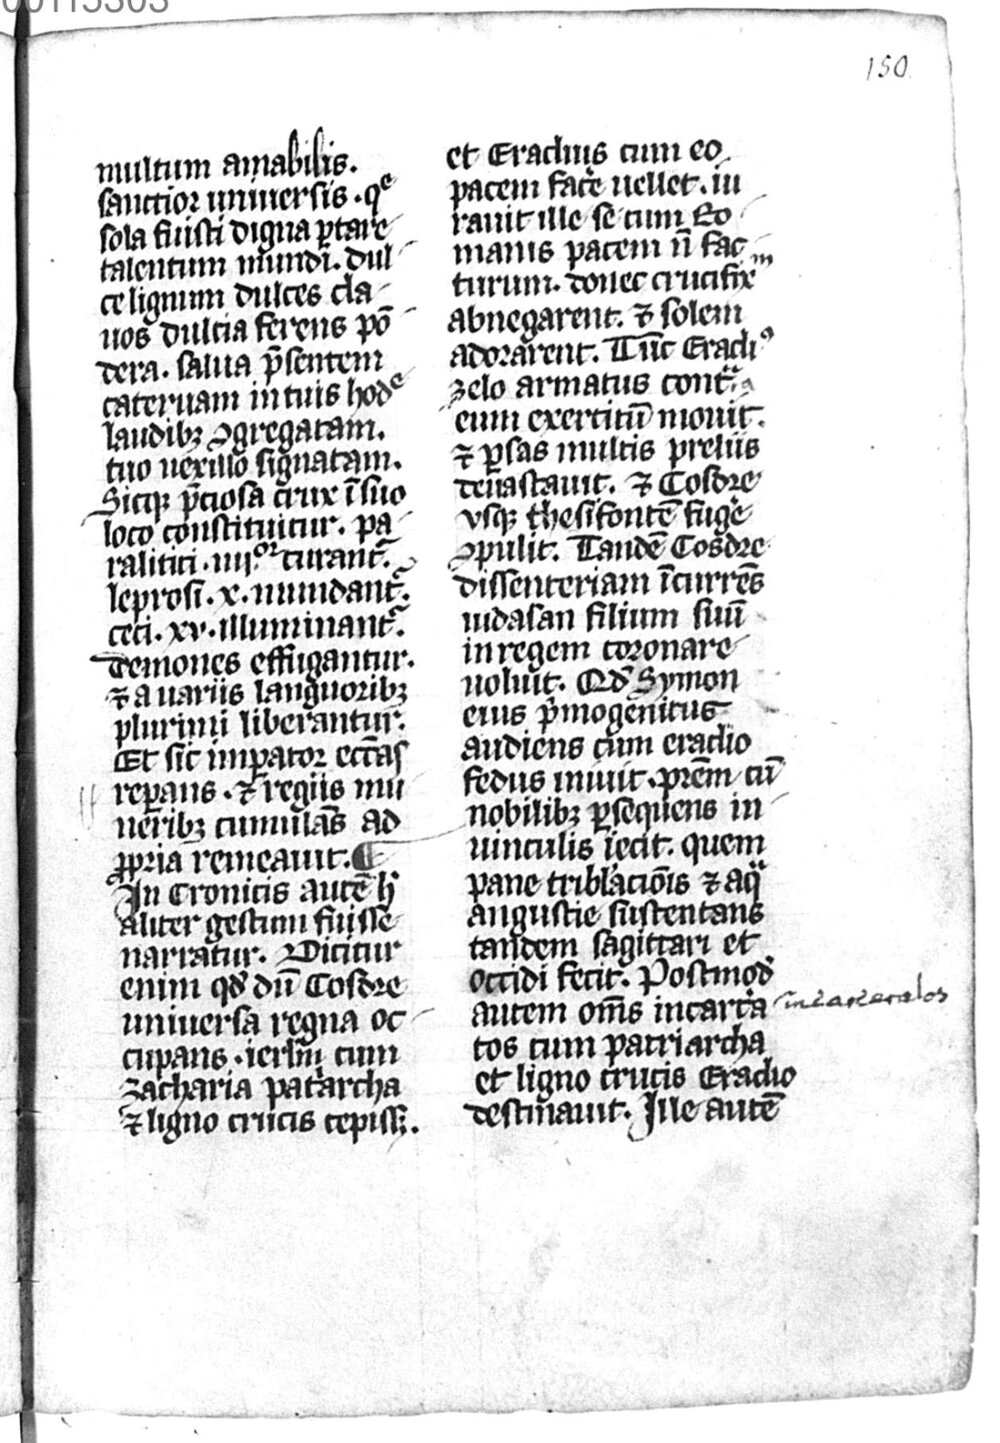 00115303
150
multum amabilis.
sanctior uniuersis . qͤ
sola fuisti digna ꝑtare
talentum mundi. dul
ce lignum dulces cla
uos dulcia ferens põ
dera. salua p̃sentem
cateruam in tuis hodͤ
laudibꝫ ꝯgregatam.
tuo uexillo signatam.
Sicqꝫ p̃ciosa crux ĩ suo
loco constituitur. pa
ralitici . iiijᵒʳ curant᷑.
leprosi . x . mundant᷑.
ceci . xv . illuminant᷑.
demones effugantur.
⁊ a uariis languoribꝫ
plurimi liberantur.
Et sic imꝑator ecc̃as
reꝑans . ⁊ regiis mu
neribꝫ cumulãs ad
ꝓpria remeauit. ¶
In Cronicis autẽ h̾
aliter gestum fuisse
narratur. Dicitur
enim qđ dũ Cosdre
uniuersa regna oc
cupans . ierl̃m cum
zacharia pat̾archa
⁊ ligno crucis cepissꝫ.
et Eraclius cum eo
pacem fac̾e uellet . iu
rauit ille se cum Ro
manis pacem ñ fac
turum . donec crucifixᵐ
abnegarent. ⁊ solem
adorarent. Tũc Eracliꝰ
zelo armatus contᷓ
eum exercitũ mouit.
⁊ ꝑsas multis preliis
deuastauit. ⁊ Cosdre
vsqꝫ thesifontẽ fug̾e
ꝯpulit. Tandẽ Cosdre
dissenteriam ĩcurrẽs
iudasan filium suũ
in regem coronare
uoluit. Qđ Symon
eius p̾mogenitus
audiens cum eraclio
fedus iniuit . pr̃em cũ
nobilibꝫ ꝑsequens in
uinculis iecit. quem
pane tribl̃aciõis ⁊ aqᷓ
angustie sustentans
tandem sagittari et
occidi fecit. Postmođ
autem om̃s incarc̾a
in carceratos
tos cum patriarcha
et ligno crucis Eraclio
destinauit. Ille autẽ